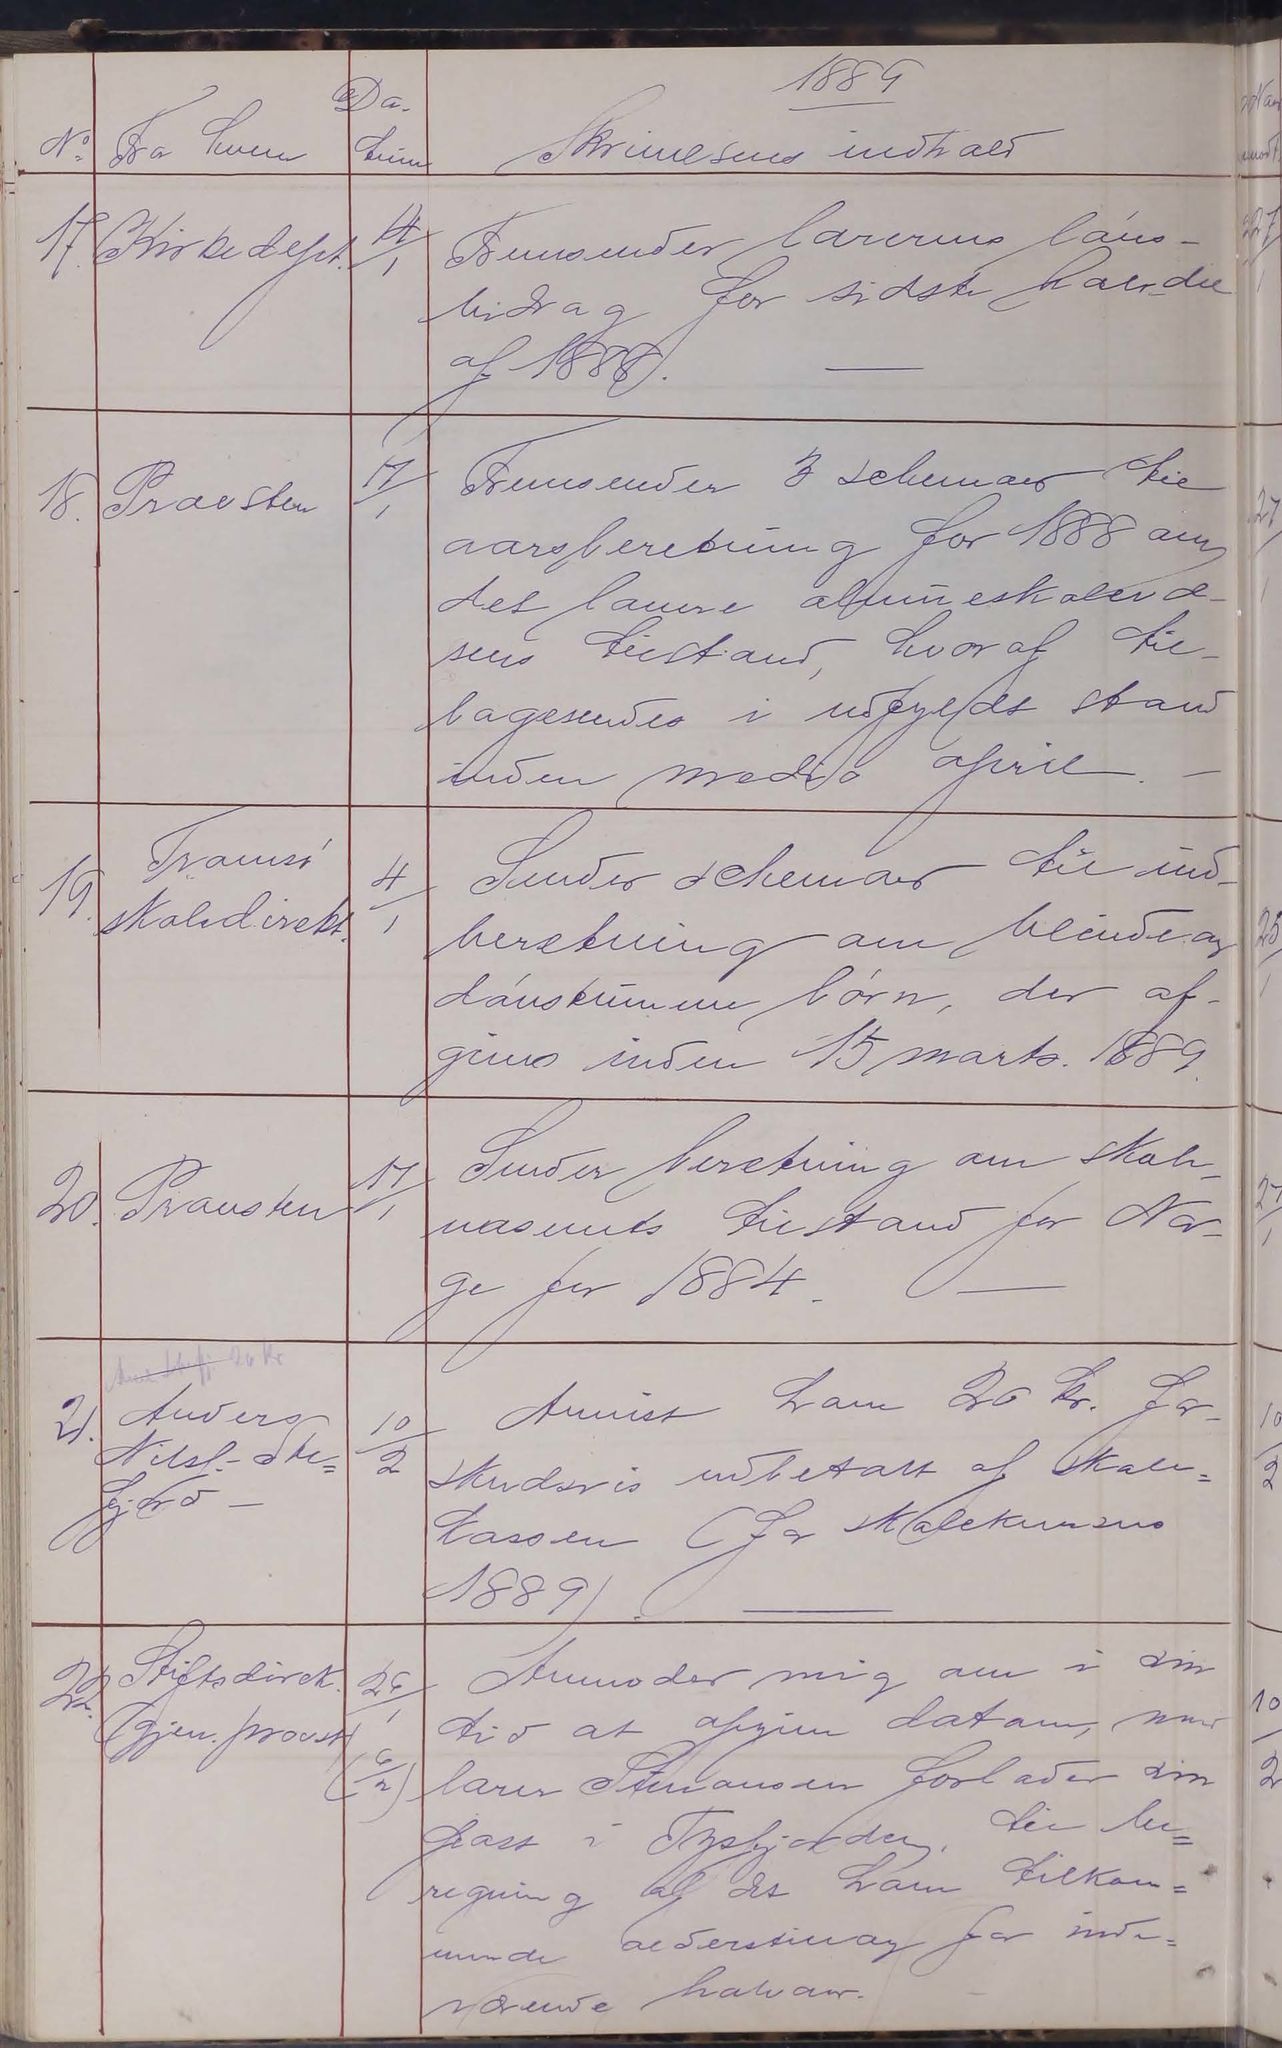 1889
No. Fra hvem Da-
tum Skrivelsens indhold
17. Kirkedept. 14/1 Fremsender lærerens løns-
bidrag for sidste halvdel
af 1888. —
18. Provsten 17/1 Fremsender 3 schemaer til
aarsberetning for 1888 om
det lavere almueskolevæ-
sens tilstand, hvoraf til-
bagesendes i udfyldt stand
inden medio april. —
19. Tromsø
skoledirekt. 4/1 Sender schemaer til ind-
beretning om blinde og
døvstumme børn, der af-
gives inden 15 marts. 1889.
20. Provsten 17/1 Sender beretning om skole-
væsenets tilstand for Nor-
ge for 1884. —
26 kr
21. Anders
Nilss.
fjord — 10/2 Anvist ham 26 kr. for-
skudsvis udbetalt af skole=
kassen (for skolekursus
1889). —
22. Stiftsdirek.
(gjen. provst) 26/1
(6/2) Anmoder mig om i sin
tid at opgive datoen, naar
lærer Simonsen forlader sin
post i Tysfjorden, til be=
regning af det ham tilkom=
mende alderstillæg for inde=
værende halvaar.
27/1
27/1
25/1
27/1
10/2
10/2